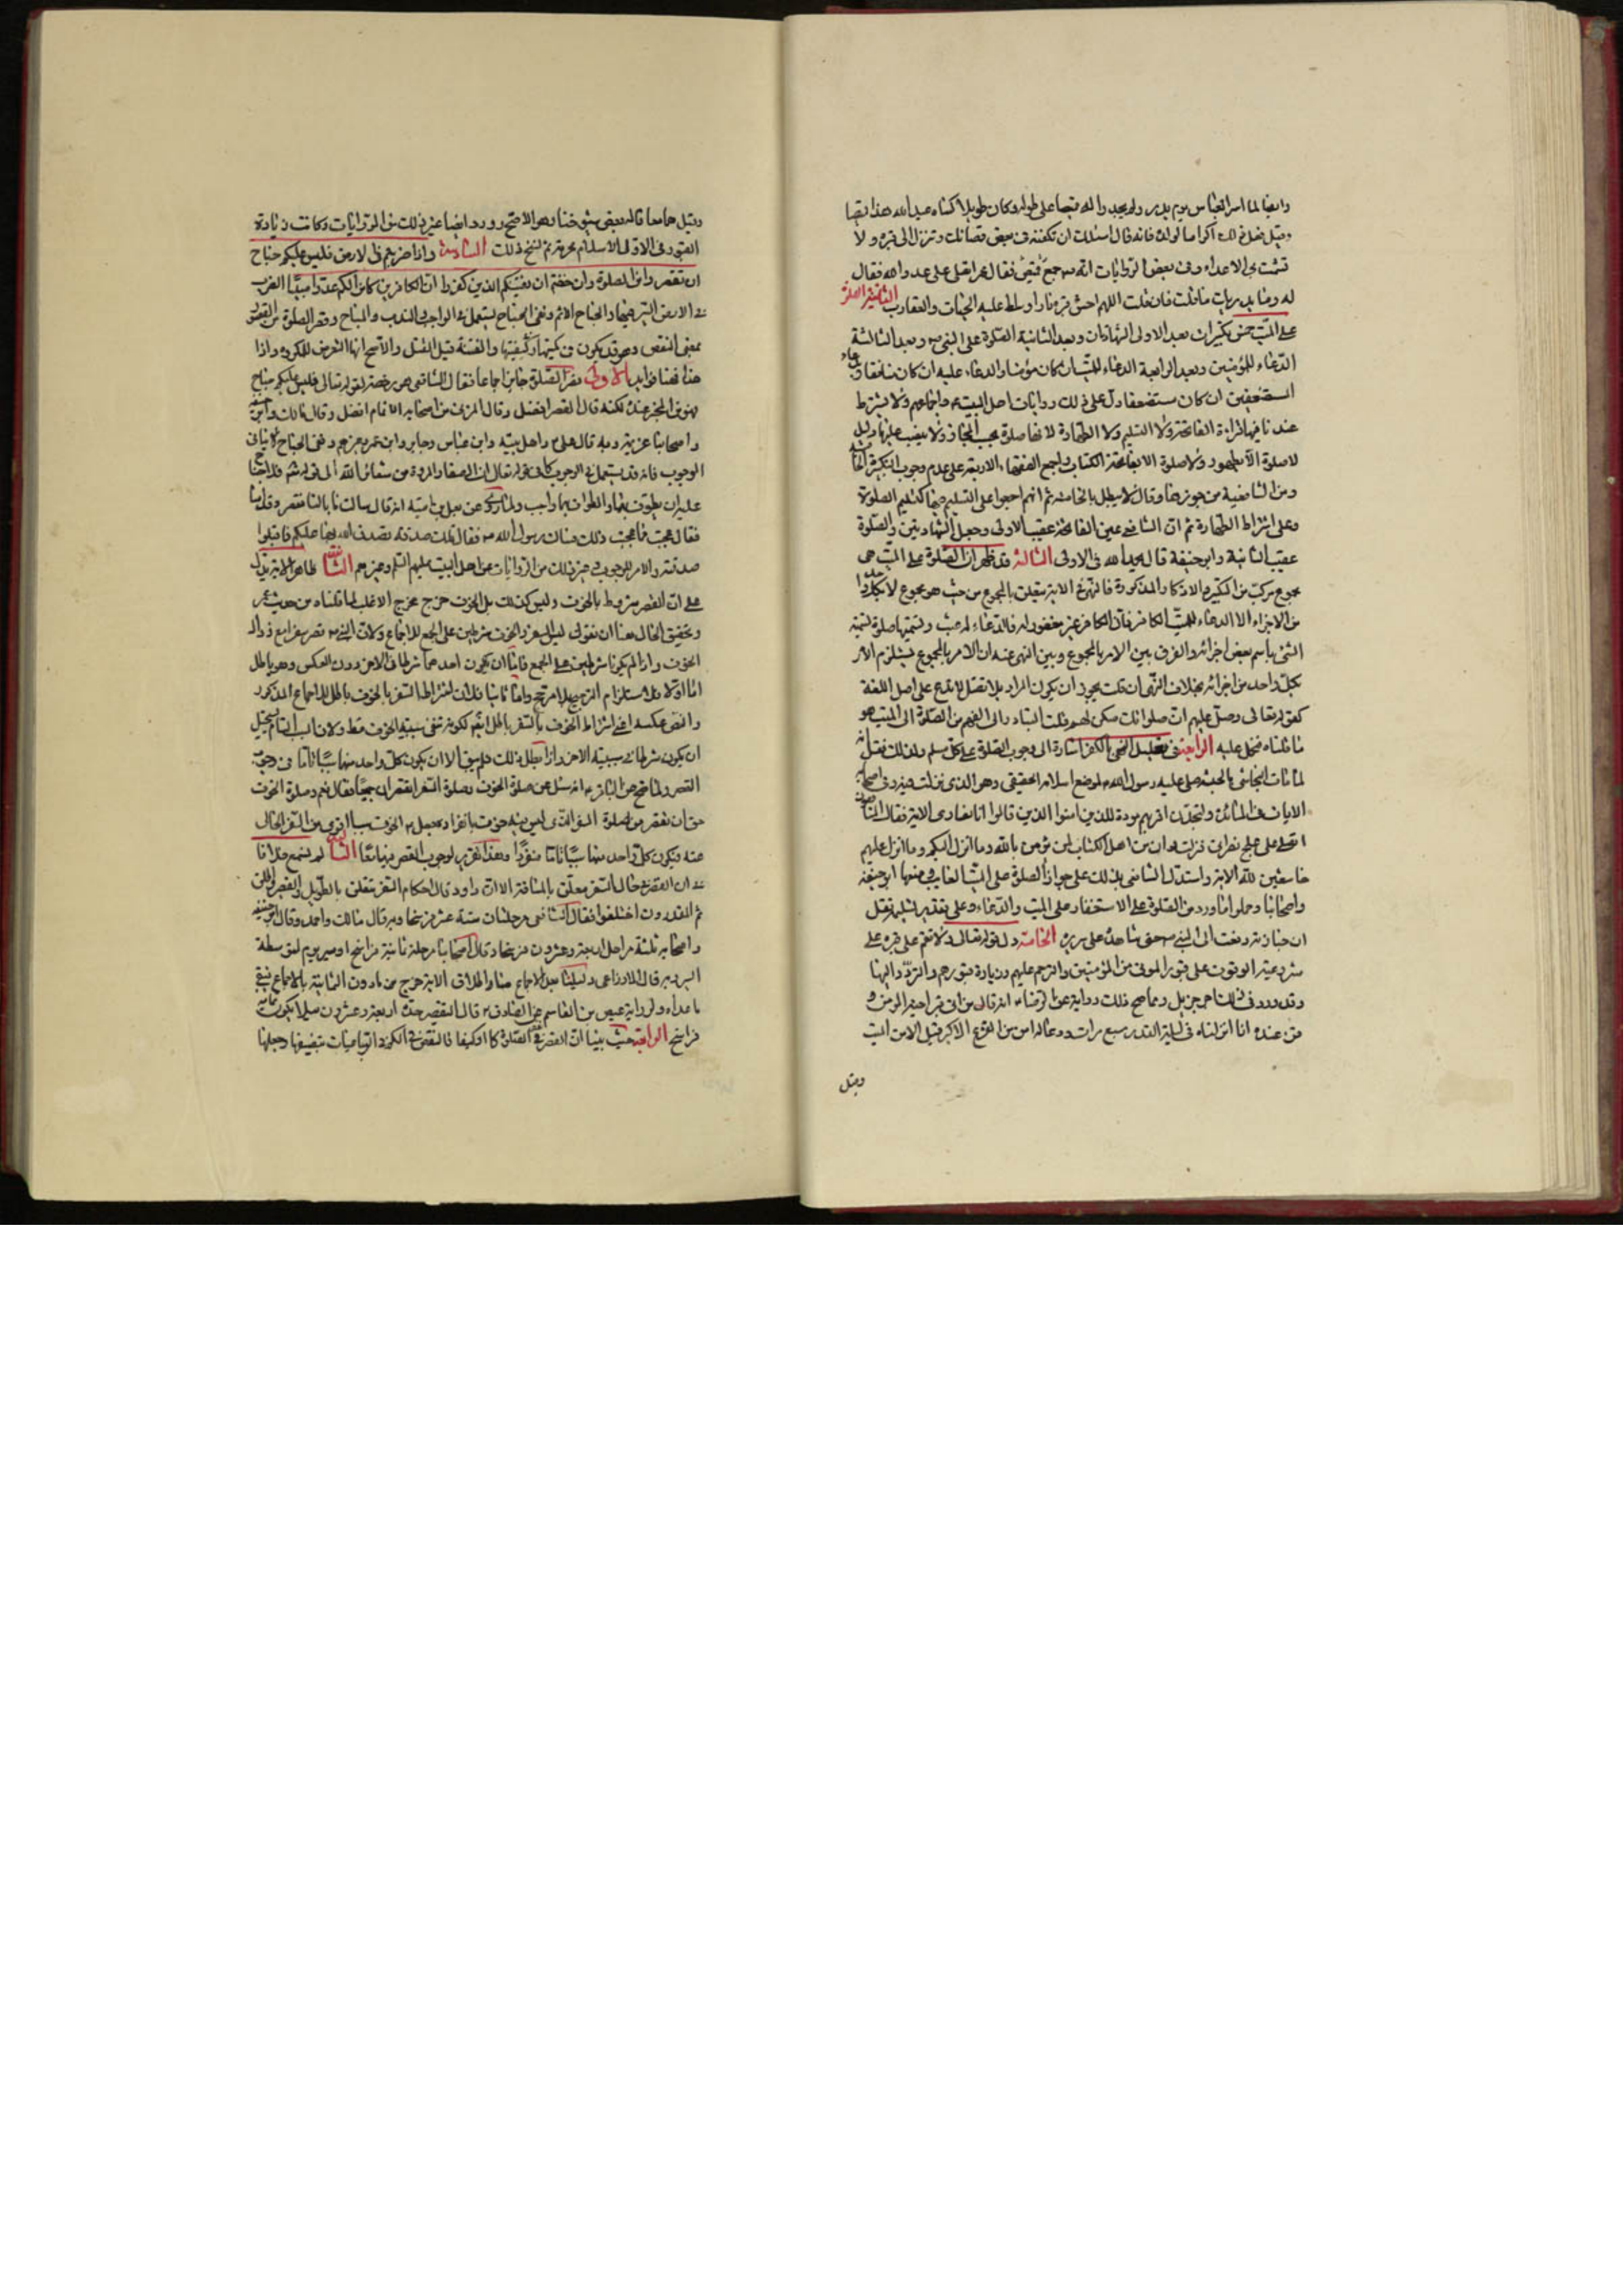 وايضا لما اسر العباس يوم بدر ولم يجدوا له قميصا على طوله وكان طويلا كساه عبد الله هذا قميصا
وقيل فعل ذلك اكراما لولده فانه قال اسئلك ان تكفنه في بعض قمصانك وتنزل الى قبره ولا
تشمت بى الاعداء وفى بعض الروايات انه م رجع فقيل فقال عمر اتصلى على عدو الله فقال
له وما يدريك ما قلت فانى قلت اللهم احش قبره نارا وسلط عليه الحيات والعقارب الثانية الصلوة
على الميت خمس تكبيرات بعد الاولى الشهادتان وبعد الثانية الصلوة على النبى ص وبعد الثالثة
الدعاء للمؤمنين وبعد الرابعة الدعاء للميت ان كان مؤمنا والدعاء عليه ان كان منافقا ودعاء
المستضعفين ان كان مستضعفا دل على ذلك روايات اهل البيت ع واجماعهم ولا يشترط
عندنا فيها قراءة الفاتحة ولا التسليم ولا الطهارة لانها صلوة بحسب المجاز ولا
لا صلوة الا بطهور ولا صلوة الا بفاتحة الكتاب واجمع الفقهاء الاربعة على عدم وجوب التكبيرة الخامسة
ومن الشافعية من جوزها وقال لا يبطل بالخامسة ثم انهم اجمعوا على التسليم فيها كتسليم الصلوة
وعلى اشتراط الطهارة ثم ان الشافعى عين الفاتحة عقيب الاولى وجعل الشهادتين والصلوة
عقيب الثانية وابو حنيفة قال يحمد الله فى الاولى الثالثة قد ظهر ان الصلوة على الميت هى
مجموع مركب من التكبير والاذكار المذكورة فالنهى فى الاية متعلق بالمجموع من حيث هو مجموع لا بكل واحد
من الاجزاء الا الدعاء للميت الكافر فان الكافر غير مغفور له فالدعاء له عبث وتسميتها صلوة تسمية
الشئ باسم بعض اجزائه والفرق بين الامر بالمجموع وبين النهى عنه ان الامر بالمجموع يستلزم الامر
بكل واحد من اجزائه بخلاف النهى ان قلت يجوز ان يكون المراد بلا تصل لا تدع على اصل اللغة
كقوله تعالى وصل عليهم ان صلواتك سكن لهم قلت المتبادر الى الفهم من الصلوة الى الميت هو
ما قلناه فيحمل عليه الرابعة فى تعليل النهى بالكفر اشارة الى وجوب الصلوة على كل مسلم ولذلك نقل انه
لما مات النجاشى بالحبشة صلى عليه رسول الله ص لموضع اسلامه الحقيقى وهو الذى نزلت فيه وفى اصحابه
الايات فى المائدة ولتجدن اقربهم مودة للذين امنوا الذين قالوا انا نصارى الاية فقال المنافقون
اتصلى على علج نصرانى فنزلت وان من اهل الكتاب لمن يؤمن بالله وما انزل اليكم وما انزل اليهم
خاشعين لله الاية واستدل الشافعى بذلك على جواز الصلوة على الميت الغايب ومنعها ابو حنيفة
واصحابنا وحملوا ما ورد من الصلوة على الاستغفار على الميت والدعاء وعلى تقدير تسليمه نقل
ان جنازته رفعت الى النبى ص حتى شاهده على سريره الخامسة دل قوله تعالى ولا تقم على قبره على
مشروعية الوقوف على قبور الموتى من المؤمنين والترحم عليهم وزيارة قبورهم والتردد اليها
وقد ورد فى ذلك اجر جزيل ومما صح ذلك رواية عن الرضا ع انه قال من اتى قبر اخيه المؤمن و
قرء عنده انا انزلناه فى ليلة القدر سبع مرات امن من الفزع الاكبر قيل الامن الميت
وقيل
وقيل هما معا قاله بعض شيوخنا وهو الاصح وورد ايضا غير ذلك من الروايات وكانت زيارة
القبور فى الاول الاسلام محرمة ثم نسخ ذلك السادسة واذا ضربتم فى الارض فليس عليكم جناح
ان تقصروا من الصلوة وان خفتم ان يفتنكم الذين كفروا ان الكافرين كانوا لكم عدوا مبينا الضرب
فى الارض السير فيها والجناح الاثم ونفى الجناح يستعمل فى الواجب والندب والمباح وقصر الصلوة من القصر
بمعنى النقص وهو قد يكون فى كميتها وكيفيتها والفتنة قيل القتل والاصح انها التعرض للمكروه واذا
هذا فهنا فوايد الاولى قصر الصلوة جايز اجماعا فقال الشافعى هو رخصة لقوله تعالى فليس عليكم جناح
لكنه قال القصر افضل وقال المزنى من اصحابه الاتمام افضل وقال مالك وابو حنيفة
واصحابنا عزيمة وبه قال على ع واهل بيته وابن عباس وجابر وابن عمر وغيرهم ونفى الجناح لا ينافى
الوجوب فانه قد يستعمل فى الوجوب كما فى قوله تعالى ان الصفا والمروة من شعائر الله الى قوله فلا جناح
عليه ان يطوف بهما والطواف بهما واجب ولما روى عن يعلى بن امية انه قال سالت ما بالنا نقصر وقد امنا
فقال عجبت مما عجبت ذلك فسالت رسول الله ص فقال تلك صدقة تصدق الله بها عليكم فاقبلوا
صدقته والامر للوجوب وغير ذلك من الروايات عن اهل البيت عليهم السلم وغيرهم الثانية ظاهر الاية يدل
على ان القصر مشروط بالخوف وليس كذلك بل الخوف خرج مخرج الاغلب لما قلناه من حديث عمر
وتحقيق الحال هنا ان نقول ليس السفر والخوف شرطين على الجمع للاجماع ولان النبى ص قصر سفرا مع زوال
الخوف واذا لم يكونا شرطين على الجمع فاما ان يكون احدهما شرطا فى الاخر دون العكس وهو باطل
اما اولا فلاستلزام الترجيح بلا مرجح واما ثانيا فلان اشتراط السفر بالخوف باطل للاجماع المذكور
ان يكون شرطا فى سببية الاخر واذا بطل ذلك فلم يبق الا ان يكون كل واحد منهما سببا تاما فى وجوب
القصر ولما صح عن الباقر ع انه سئل عن صلوة الخوف وصلوة السفر اتقصران جميعا فقال نعم وصلوة الخوف
احق ان تقصر من صلوة السفر الذى ليس فيه خوف بانفراده فجعل ع الخوف سببا اقوى من السفر الخالى
عنه فيكون كل واحد منهما سببا تاما منفردا وهذا تقرير لوجوب القصر فيهما معا الثالثة لم نسمع خلافا
فى ان القصر فى حال السفر متعلق بالمسافة الا ان داود قال احكام السفر تتعلق بالطويل والقصير
ثم المقدرون اختلفوا فقال الشافعى مرحلتان ستة عشر فرسخا وبه قال مالك واحمد وقال ابو حنيفة
واصحابه ثلثة مراحل اربعة وعشرون فرسخا وقال اصحابنا مرحلة ثمانية فراسخ او مسير يوم
السير وبه قال الاوزاعى دليلنا بعد الاجماع منا واطلاق الاية خرج من ما دون الثمانية بالاجماع فبقى
ما عداه ولرواية عيص بن القاسم عن الصادق ع قال التقصير حده اربعة وعشرون ميلا يكون ثمانية
فراسخ الرابعة حيث بينا ان القصر فى الصلوة كما وكيفا فالنقص فى الكم فى الرباعيات تنصيفها وجعلها